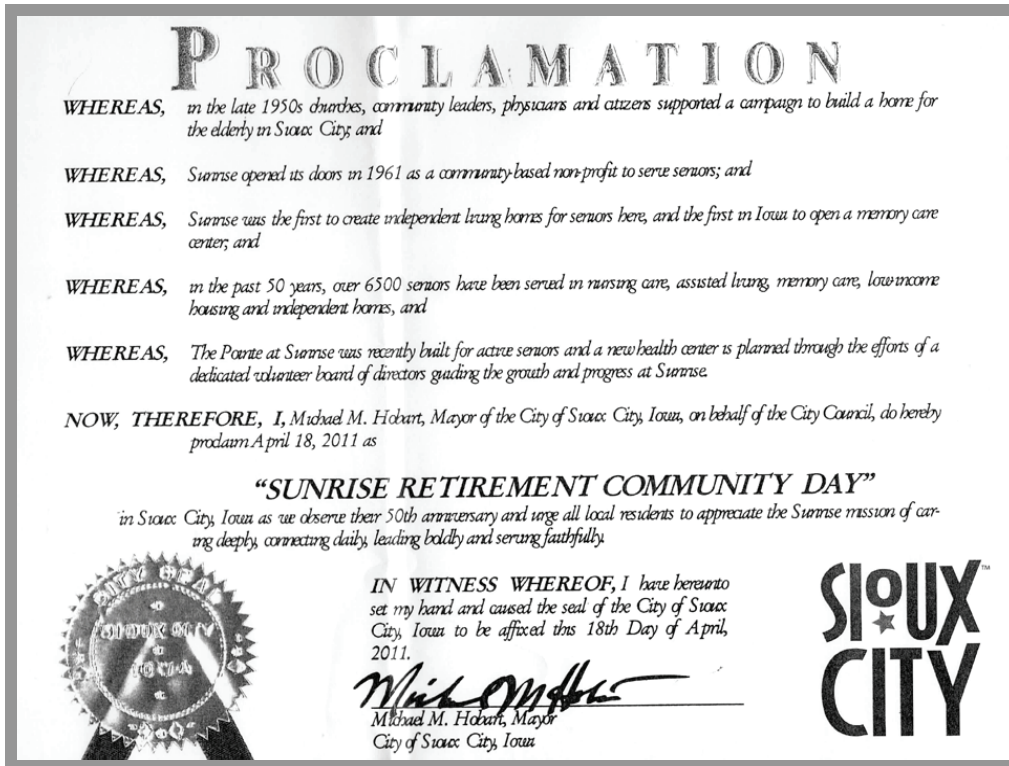 PROCLAMATION
WHEREAS, in the late 1950s churches, community leaders, physicians and citizens supported a campaign to build a home for
the elderly in Sioux City; and
WHEREAS, Sunrise opened its doors in 1961 as a community-based non-profit to serve seniors; and
WHEREAS, Sunrise was the first to create independent living homes for seniors here, and the first in Iowa to open a memory care
center; and
WHEREAS, in the past 50 years, over 6500 seniors have been served in nursing care, assisted living, memory care, low-income
housing and independent homes, and
WHEREAS, The Pointe at Sunrise was recently built for active seniors and a new health center is planned through the efforts of a
dedicated volunteer board of directors guiding the growth and progress at Sunrise.
NOW, THEREFORE, I, Michael M. Hobart, Mayor of the City of Sioux City, Iowa, on behalf of the City Council, do hereby
proclaim April 18, 2011 as
“SUNRISE RETIREMENT COMMUNITY DAY”
in Sioux City, Iowa as we observe their 50th anniversary and urge all local residents to appreciate the Sunrise mission of car-
ing deeply, connecting daily, leading boldly and serving faithfully.
IN WITNESS WHEREOF, I have hereunto
set my hand and caused the seal of the City of Sioux
City, Iowa to be affixed this 18th Day of April,
2011.
Michael M. Hobart, Mayor
City of Sioux City, Iowa
CITY OF
SIOUX CITY
IOWA
SIOUX
CITY
™